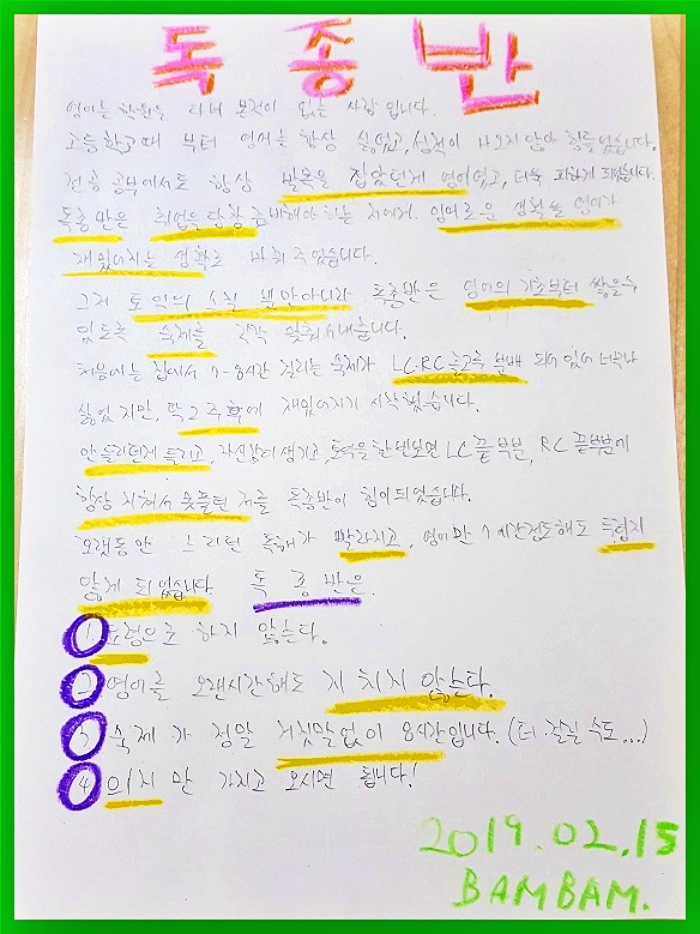 독종반
영어는 학원을 다녀 본적이 없는 사람 입니다.
고등학교때 부터 영어는 항상 싫었고, 성적이 나오지않아 힘들었습니다.
전공 공부에서도 항상 발목을 잡았던게 영어였고, 더욱 피하게 되었습니다.
독종반은 취업을 당장 준비해야 하는 저에게. 영어로운 생활을 영어가
재밌어지는 생활로 바꿔 주었습니다.
그저 토익의 스킬 뿐만아니라 독종반은 영어의 기초부터 쌓을수
있도록 숙제를 각각 맞춰서내줍니다.
처음에는 집에서 7-8시간 걸리는 숙제가 LC.RC 골고루 분배 되어 있어 더욱더
싫었지만, 딱 2주후에 재밌어지기 시작했습니다.
안들리던게 들리고, 자신감이 생기고, 토익을 한번보면 LC끝부분, RC끝부분에
항상 지쳐서 못풀던 저를 독종반이 힘이되었습니다.
오랫동안 느리던 독해가 빨라지고, 영어만 7시간정도해도 두렵지
않게 되었습니다. 독종반은.
① 도령으로 하지 않는다.
② 영어를 오랜시간해도 지치지 않는다.
③ 숙제가 정말 거짓말없이 8시간입니다. (더 걸릴 수도...)
④ 의지만 가지고 오시면 됩니다!
2019.02.15
BAMBAM.